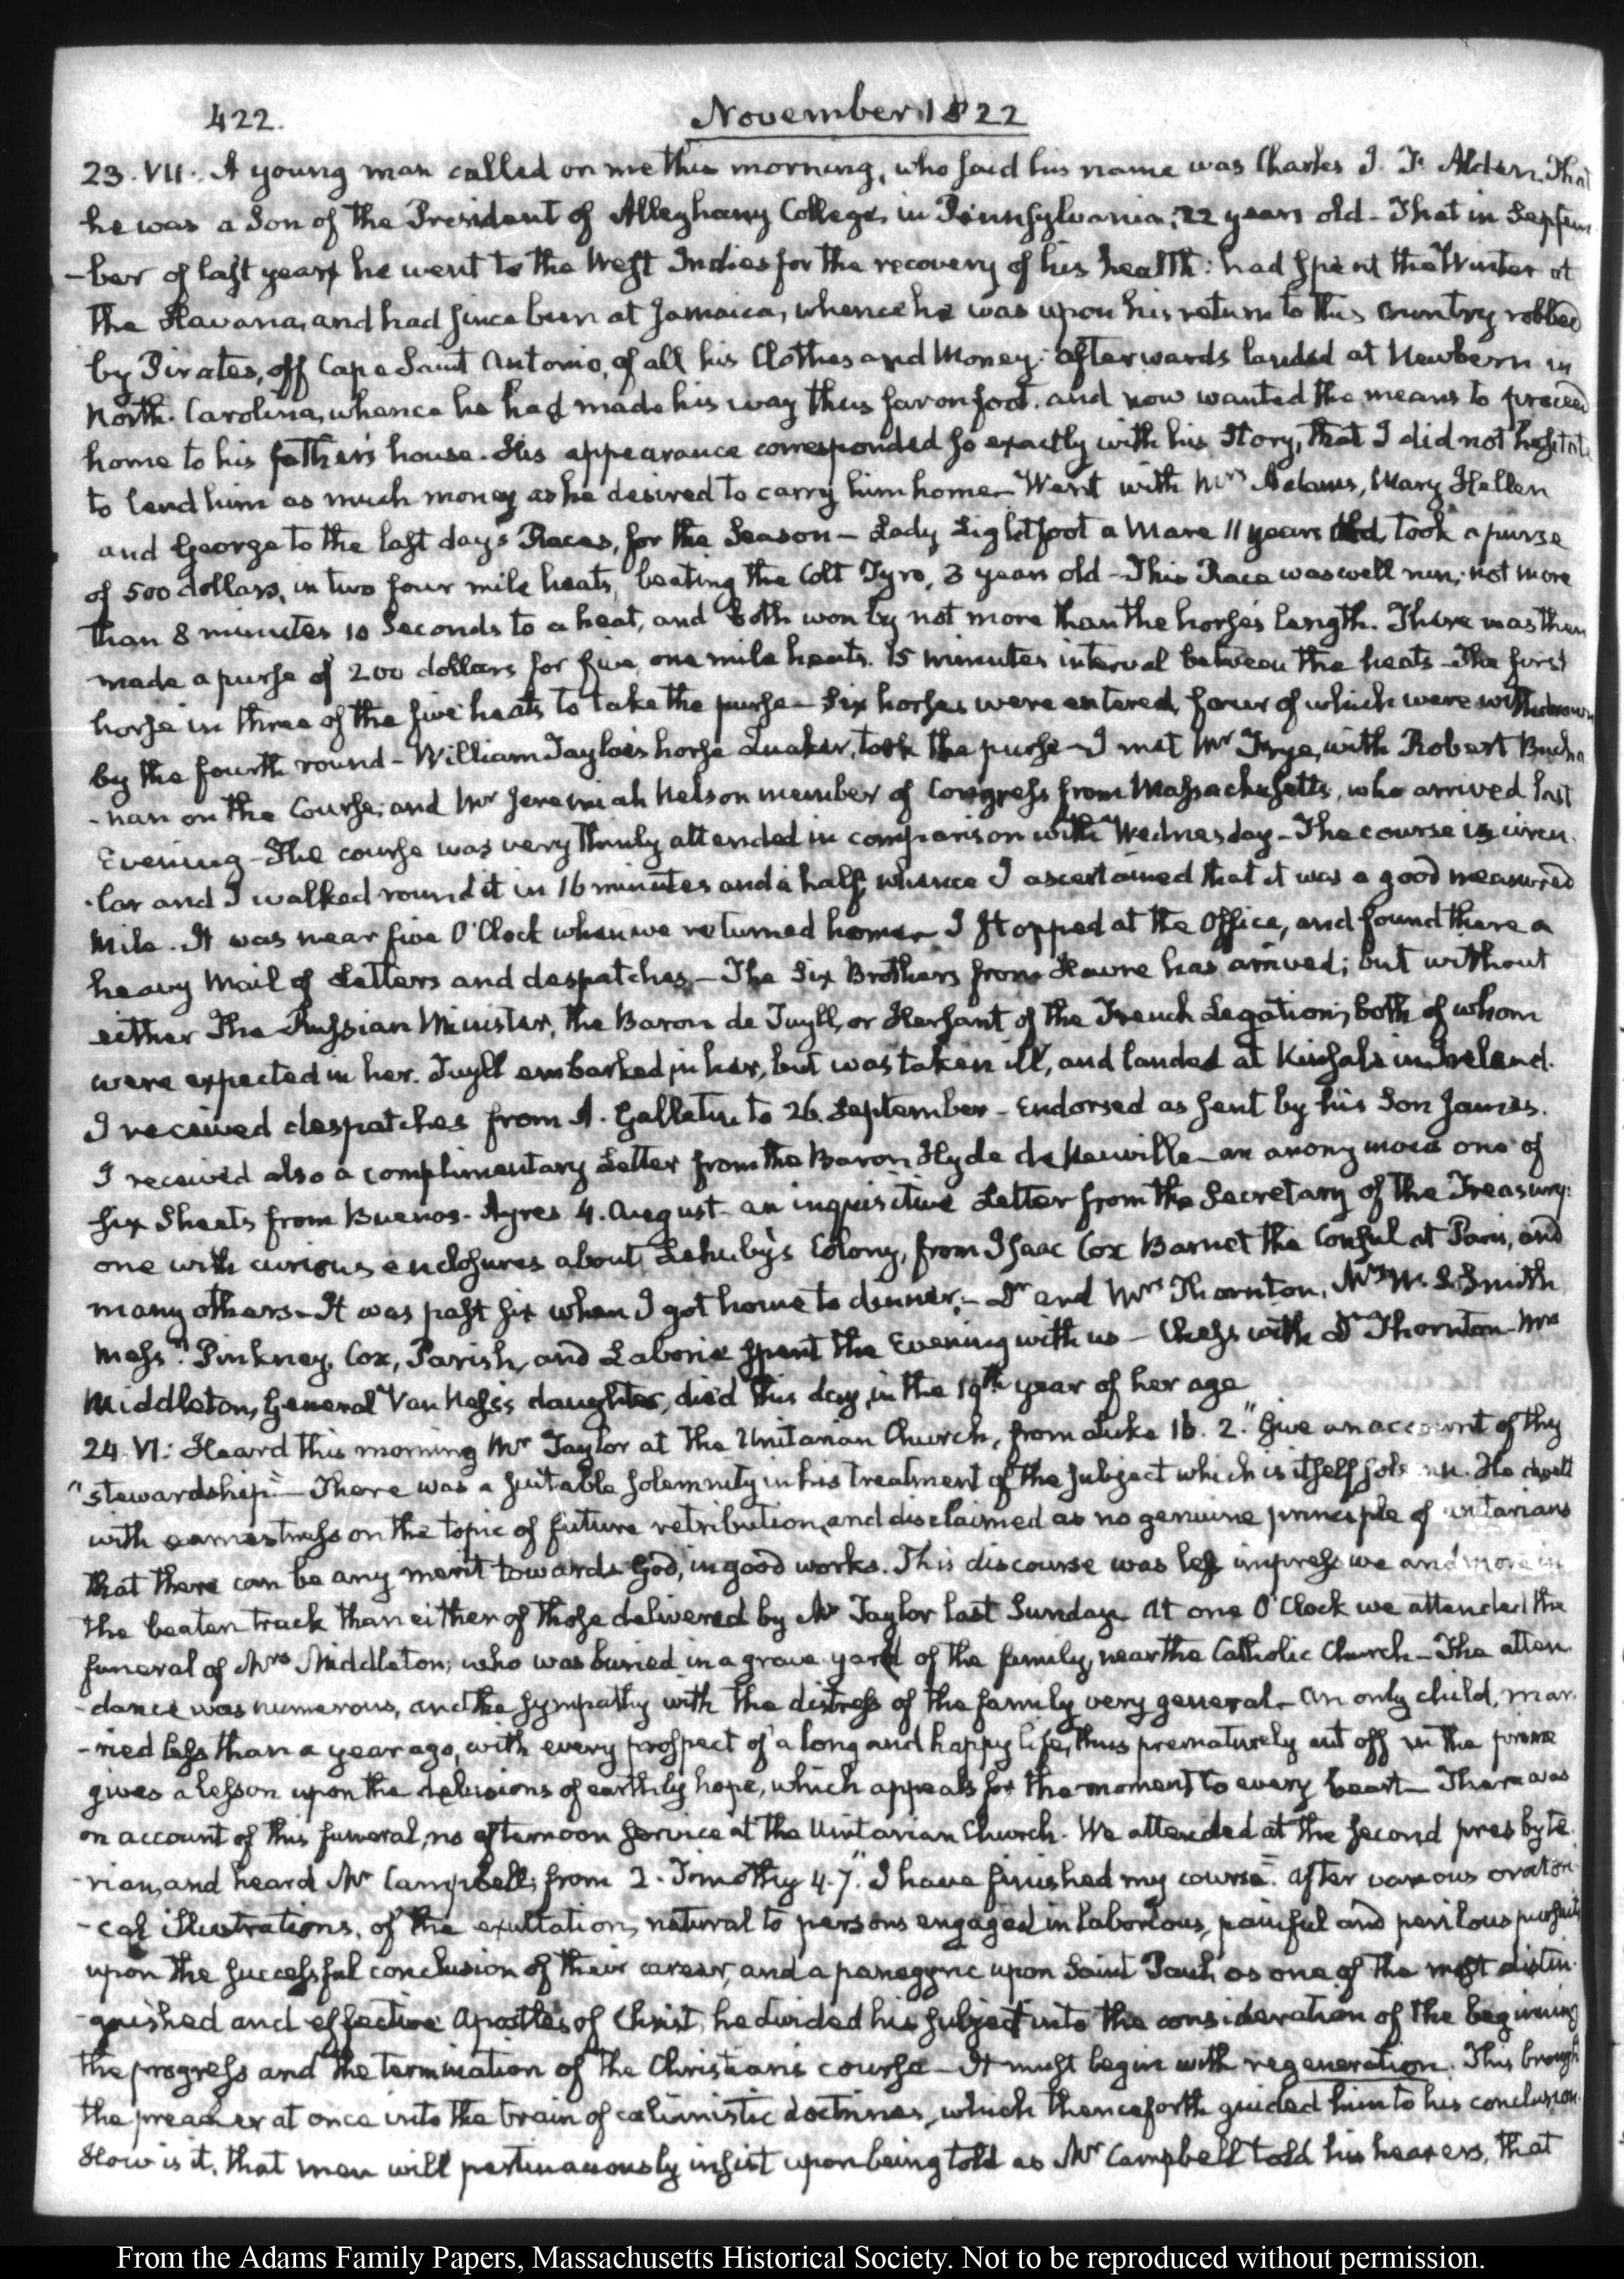 422.
November 1822
23. VII. A young man called on me this morning, who said his name was Charles J. F. Alden. That
he was a Son of the President of Alleghany College, in Pennsylvania; 22 years old - That in Septem
-ber of last year he went to the West Indies for the recovery of his health: had spent the Winter at
the Havana, and had since been at Jamaica, whence he was upon his return to this Country robbed
by Pirates, off Cape Saint Antonio, of all his Clothes and Money: afterwards landed at Newbern in
North-Carolina, whence he had made his way thus far on foot. and now wanted the means to proceed
home to his father's house. His appearance corresponded so exactly with his Story, that I did not hesitate
to lend him as much money as he desired to carry him home - Went with Mrs Adams, Mary Hellen
and George to the last day's Races, for the Season - Lady Lightfoot a Mare 11 years old, took a purse
of 500 dollars, in two four mile heats, beating the Colt Tyro, 3 years old - This Race was well run; not more
than 8 minutes 10 Seconds to a heat, and both won by not more than the horse's length. There was then
made a purse of 200 dollars for five, one mile heats. 15 minutes interval between the heats - The first
horse in three of the five heats to take the purse - Six horses were entered, four of which were withdrawn
by the fourth round - William Tayloe's horse Quaker, took the purse - I met Mr Frye, with Robert Bucha
-nan on the Course; and Mr Jeremiah Nelson member of Congress from Massachusetts, who arrived last
Evening - The course was very thinly attended in comparison with Wednesday - The course is circu
-lar and I walked round it in 16 minutes and a half, whence I ascertained that it was a good measured
Mile. It was near five O'Clock when we returned home - I stopped at the Office, and found there a
heavy Mail of Letters and despatches - The Six Brothers from Havre has arrived; but without
either The Russian Minister, the Baron de Tuyll, or Hersant of the French Legation; both of whom
were expected in her. Tuyll embarked in her, but was taken ill, and landed at Kinsale in Ireland.
I received despatches from A. Gallatin to 26. September - Endorsed as sent by his Son James.
I received also a complimentary Letter from the Baron Hyde de Neuville - an anonymous one of
six Sheets from Buenos-Ayres 4. August - an inquisitive Letter from the Secretary of the Treasury:
one with curious enclosures about Lehuby's Colony, from Isaac Cox Barnet the Consul at Paris, and
many others - It was past six when I got home to dinner - Dr and Mrs Thornton, Mrs W. S. Smith
Messrs Pinkney, Cox, Parish, and Laborie spent the Evening with us - Chess with Dr Thornton - Mrs
Middleton, General Van Ness's daughter, died this day, in the 19th year of her age
24. VI: Heard this morning Mr Taylor at the Unitarian Church, from Luke 16. 2. "Give an account of thy
"stewardship." - There was a suitable solemnity in his treatment of the subject which is itself solemn. He dwelt
with earnestness on the topic of future retribution, and disclaimed as no genuine principle of unitarians
that there can be any merit towards God, in good works. This discourse was less impressive and more in
the beaten track than either of those delivered by Mr Taylor last Sunday. At one O'Clock we attended the
funeral of Mrs Middleton; who was buried in a grave yard of the family, near the Catholic Church - The atten
-dance was numerous, and the sympathy with the distress of the family very general - An only child, mar
-ried less than a year ago, with every prospect of a long and happy life, thus prematurely cut off in the prime
gives a lesson upon the delusions of earthly hope, which appeals for the moment to every heart - There was
on account of this funeral, no afternoon service at the Unitarian Church. We attended at the second presbyte
-rian, and heard Mr Campbell, from 2. Timothy 4. 7. "I have finished my course". After various oratori
-cal illustrations, of the exultation, natural to persons engaged in laborious, painful and perilous pursuits
upon the successful conclusion of their career, and a panegyric upon Saint Paul, as one of the most distin
-guished and effective Apostles of Christ, he divided his subject into the consideration of the beginning
the progress and the termination of the Christian's course - It must begin with regeneration. This brought
the preacher at once into the train of calvinistic doctrines, which thenceforth guided him to his conclusion.
How is it, that men will pertinaciously insist upon being told as Mr Campbell told his hearers, that
From the Adams Family Papers, Massachusetts Historical Society. Not to be reproduced without permission.